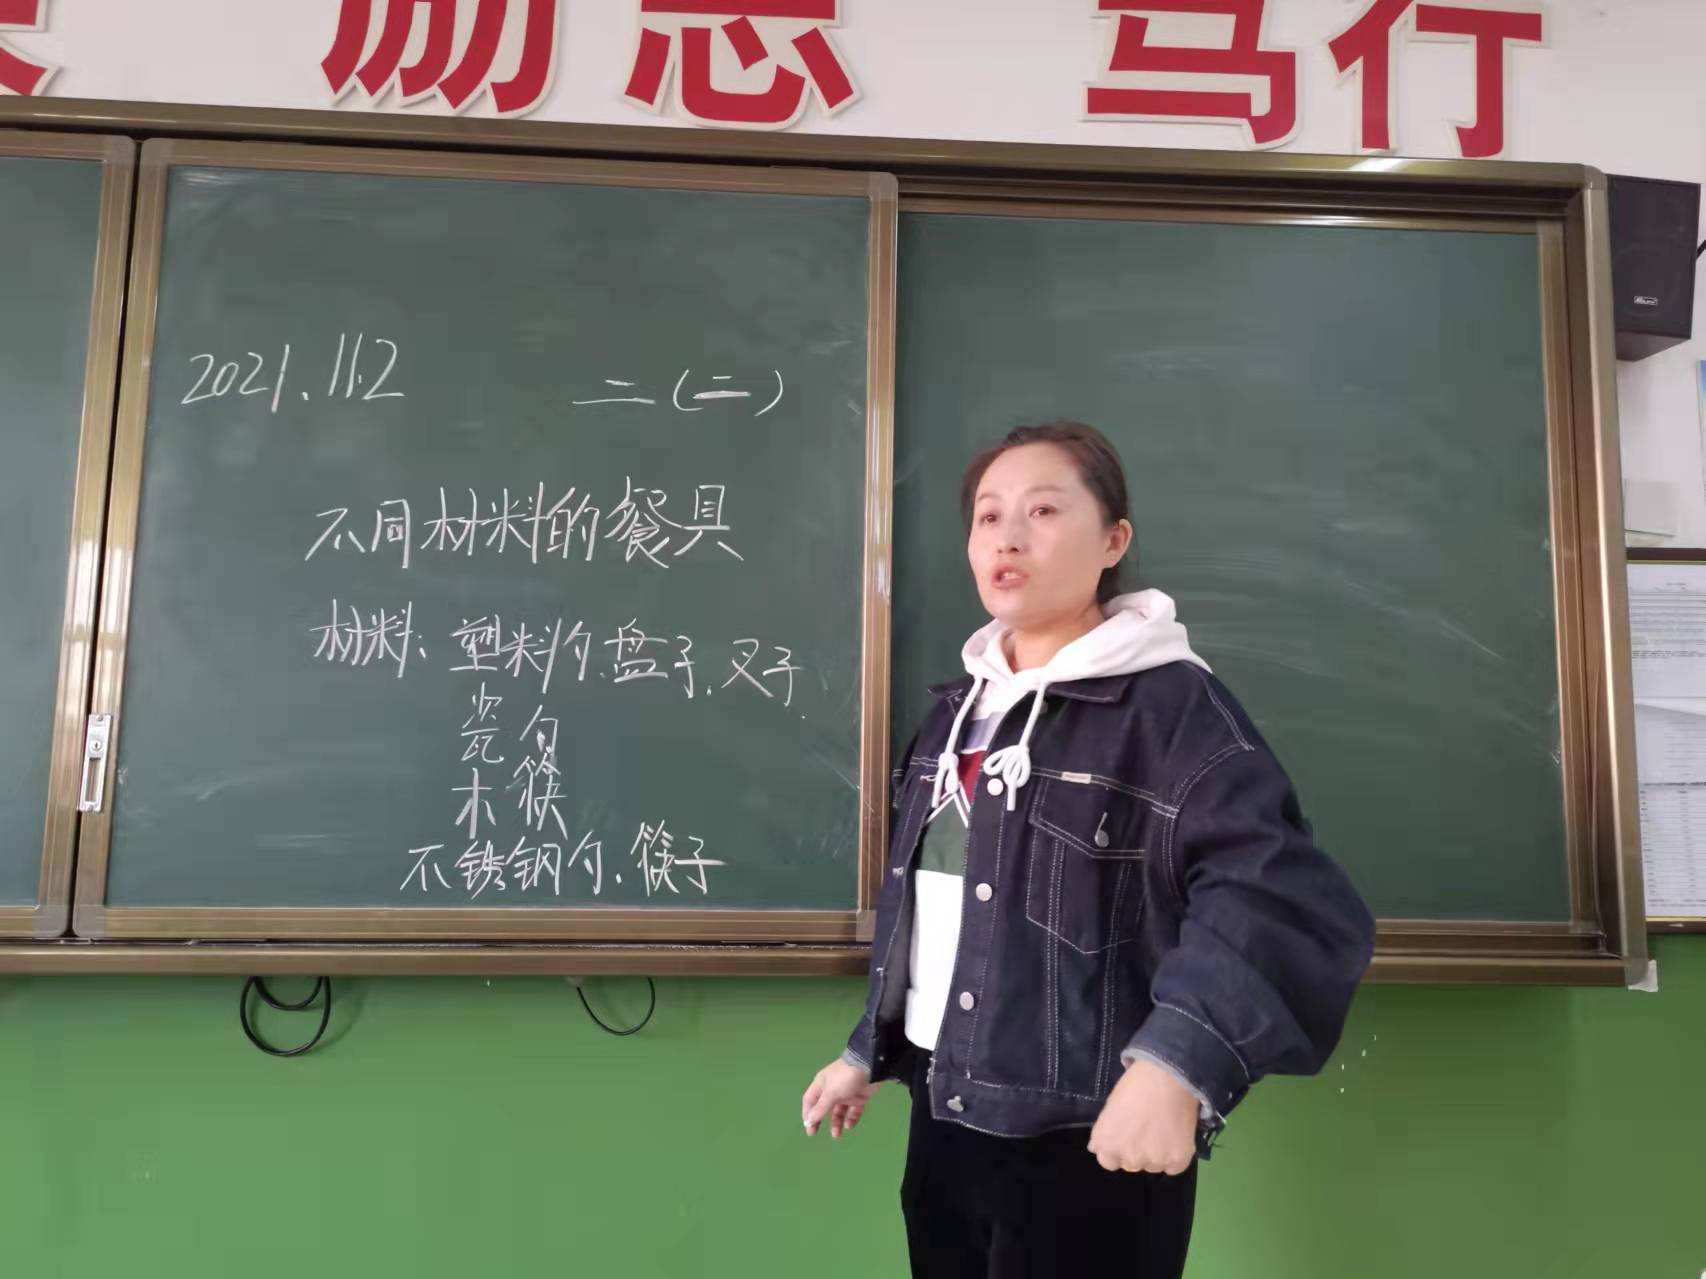 励志 笃行
2021.11.2 二(二)
不同材料的餐具
材料：塑料勺.盘子.叉子.
瓷勺
木筷
不锈钢勺.筷子